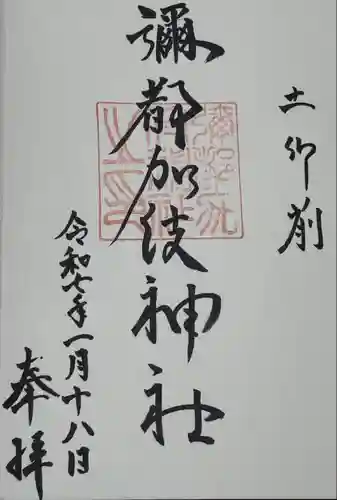 土御前
彌都加伎神社
令和七年一月十八日
奉拝